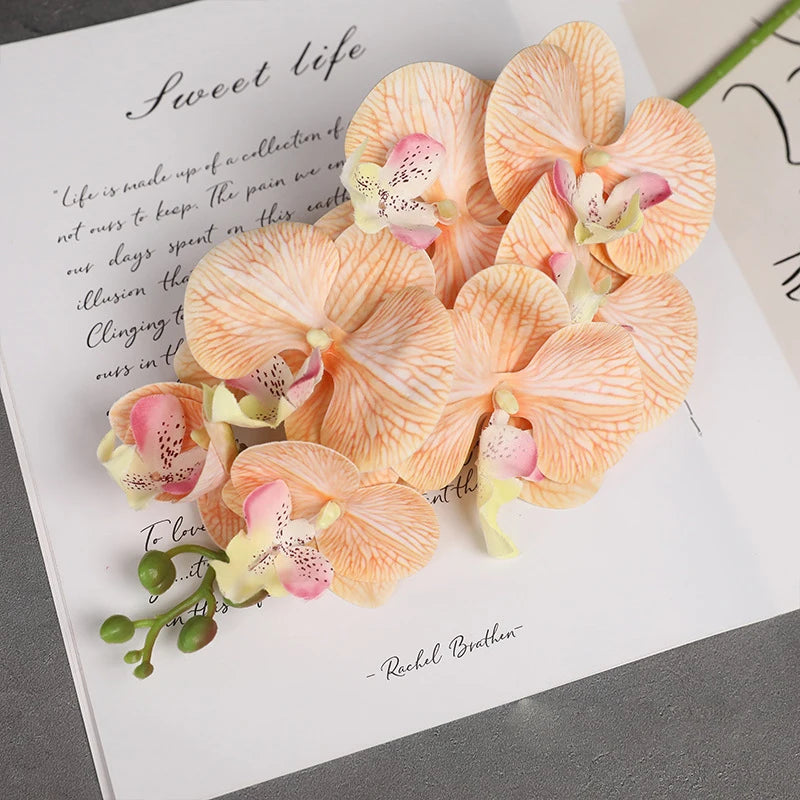 Sweet life
"Life is made up of a collection of
not ours to keep. The pain we en
our days spent on this earth
illusion that
Clinging to
ours in th
To love
it
in this
nt th
- Rachel Brathen -